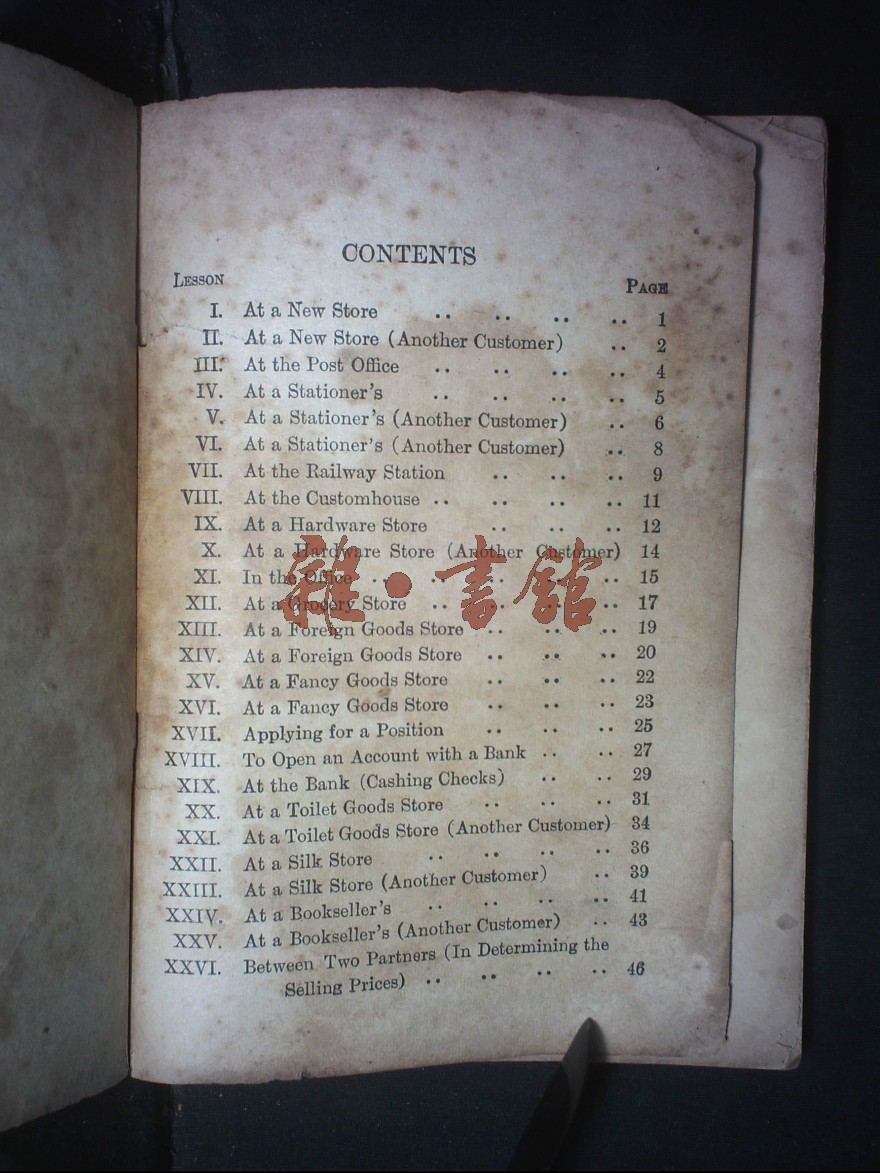 CONTENTS
LESSON PAGE
I. At a New Store .. .. .. .. 1
II. At a New Store (Another Customer) .. 2
III. At the Post Office .. .. .. .. 4
IV. At a Stationer's .. .. .. .. 5
V. At a Stationer's (Another Customer) .. 6
VI. At a Stationer's (Another Customer) .. 8
VII. At the Railway Station .. .. .. 9
VIII. At the Customhouse .. .. .. .. 11
IX. At a Hardware Store .. .. .. 12
X. At a Hardware Store (Another Customer) 14
XI. In the Office .. .. .. .. .. 15
XII. At a Grocery Store .. .. .. .. 17
XIII. At a Foreign Goods Store .. .. .. 19
XIV. At a Foreign Goods Store .. .. .. 20
XV. At a Fancy Goods Store .. .. .. 22
XVI. At a Fancy Goods Store .. .. .. 23
XVII. Applying for a Position .. .. .. 25
XVIII. To Open an Account with a Bank .. .. 27
XIX. At the Bank (Cashing Checks) .. .. 29
XX. At a Toilet Goods Store .. .. .. 31
XXI. At a Toilet Goods Store (Another Customer) 34
XXII. At a Silk Store .. .. .. .. 36
XXIII. At a Silk Store (Another Customer) .. 39
XXIV. At a Bookseller's .. .. .. .. 41
XXV. At a Bookseller's (Another Customer) .. 43
XXVI. Between Two Partners (In Determining the
Selling Prices) .. .. .. .. 46
雜·書館